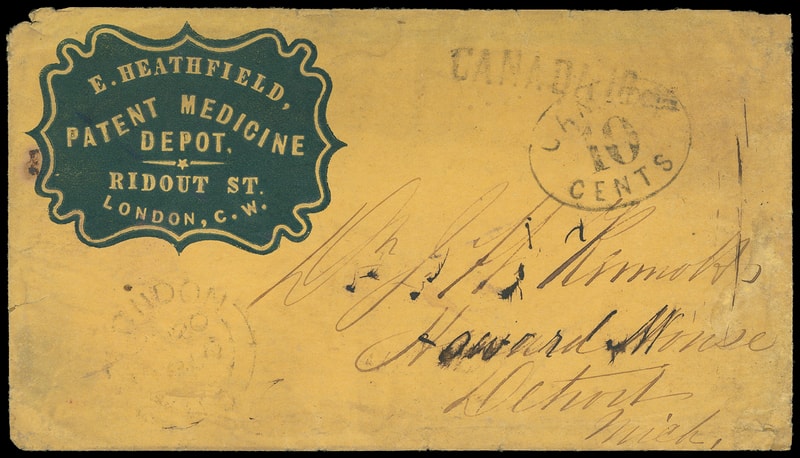 E. HEATHFIELD,
PATENT MEDICINE
DEPOT,
RIDOUT ST.
LONDON, C. W.
CANADA 10
10
CENTS
LONDON
Dr J. H.
Howard House
Detroit
Mich,